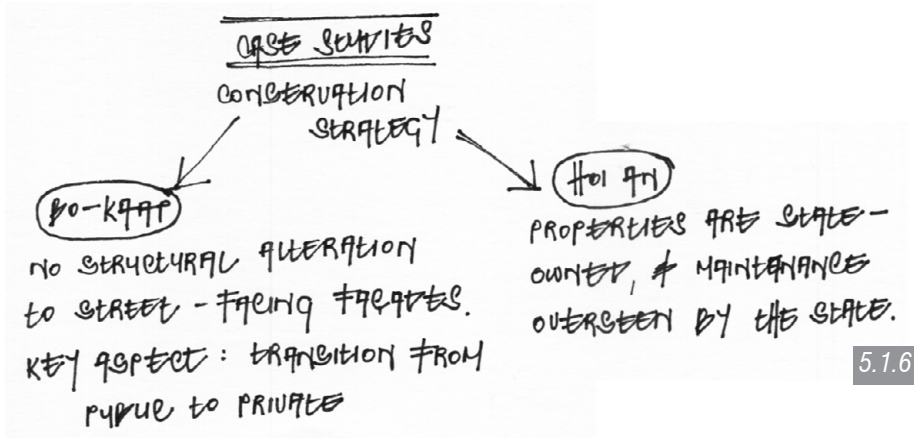 CASE STUDIES
CONSERVATION
STRATEGY
BO-KAAP
NO STRUCTURAL ALTERATION
TO STREET - FACING FACADES.
KEY ASPECT: TRANSITION FROM
PUBLIC TO PRIVATE
HOI AN
PROPERTIES ARE STATE-
OWNED, & MAINTENANCE
OVERSEEN BY THE STATE.
5.1.6